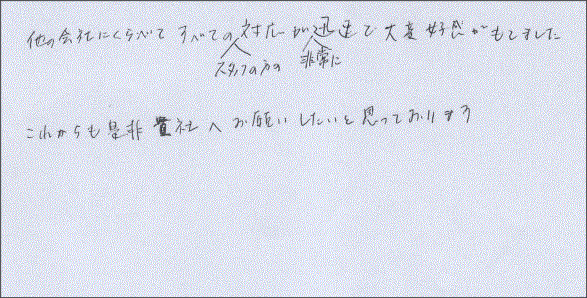 他の会社にくらべて すべての対応が迅速で 大変好感がもてました
スタッフの方の 非常に
これからも是非 貴社へお願いしたいと思っております